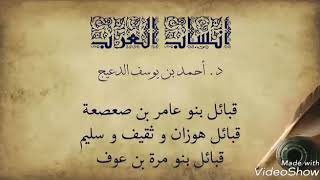 أنساب العرب
د. أحمد بن يوسف الدعيج
قبائل بنو عامر بن صعصعة
قبائل هوزان و ثقيف و سليم
قبائل بنو مرة بن عوف
Made with
VideoShow